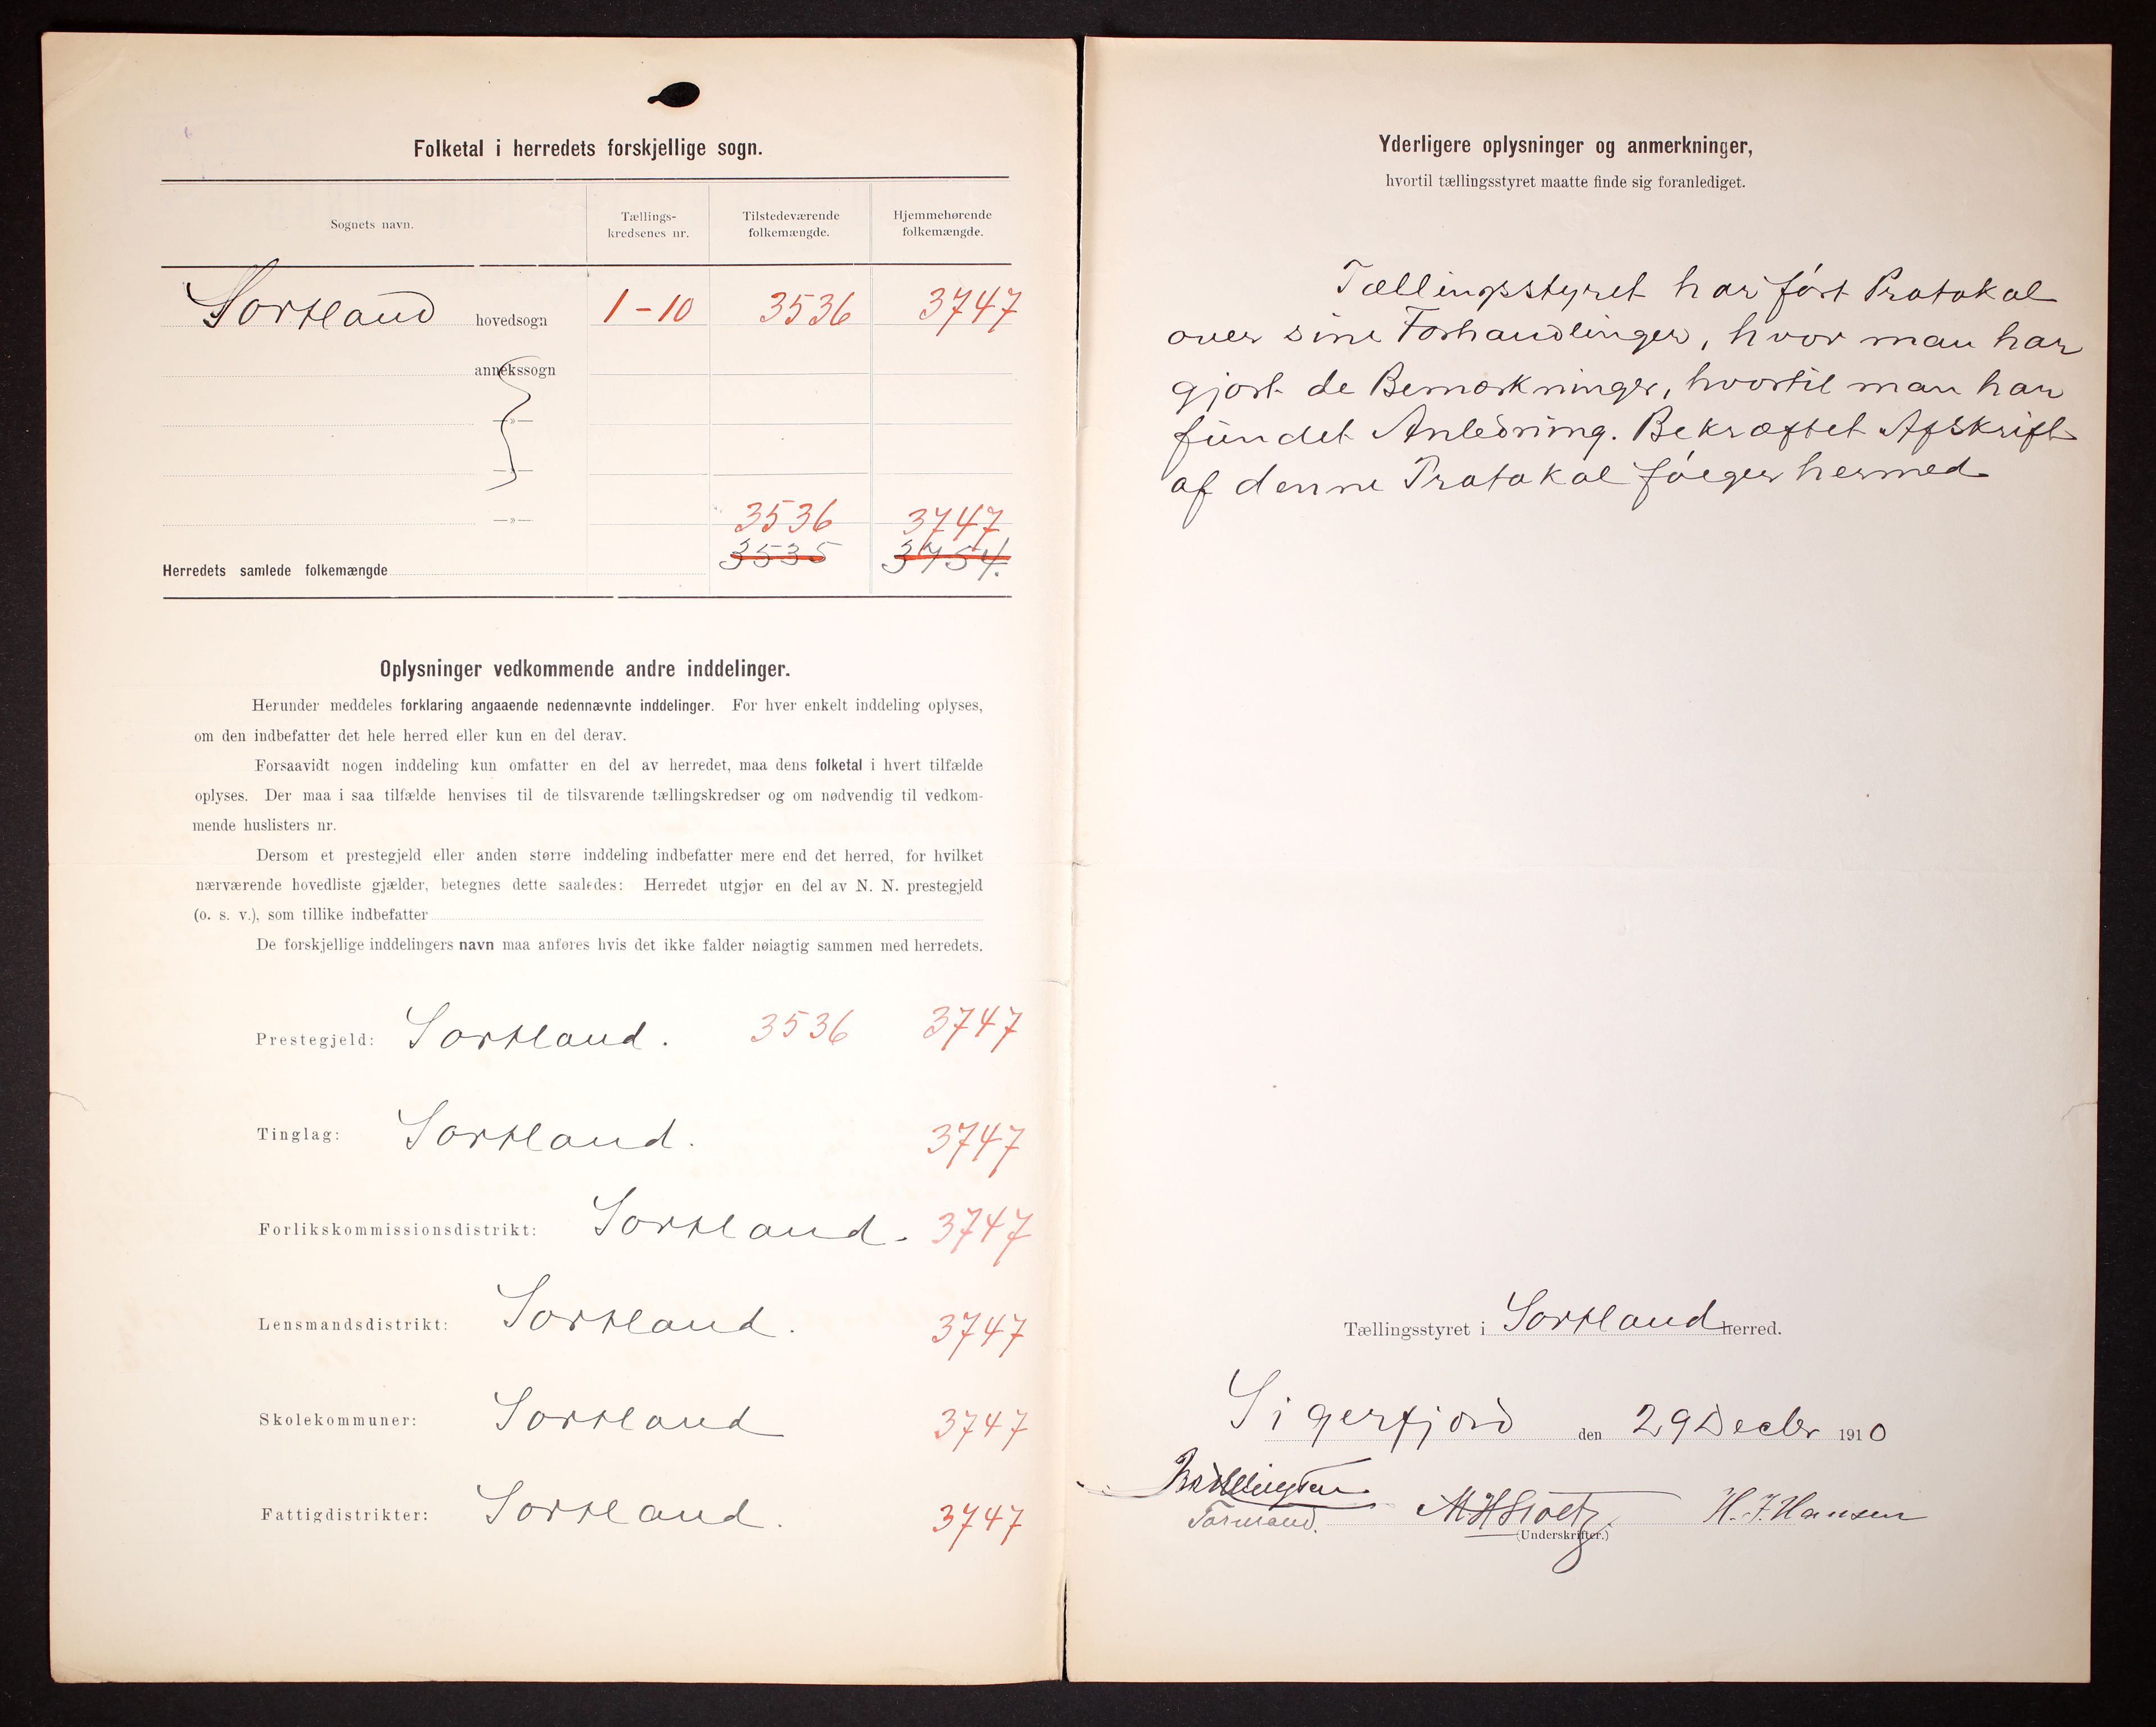 Folketal i herredets forskjellige sogn.
Sognets navn.
Tællings-
kredsenes nr.
Tilstedeværende
folkemængde.
Hjemmehørende
folkemængde.
Sortland hovedsogn 1-10 3536 3747
annekssogn
—»—
—»—
—»— 3536 3747
Herredets samlede folkemængde 3535 3754.
Oplysninger vedkommende andre inddelinger.
Herunder meddeles forklaring angaaende nedennævnte inddelinger. For hver enkelt inddeling oplyses,
om den indbefatter det hele herred eller kun en del derav.
Forsaavidt nogen inddeling kun omfatter en del av herredet, maa dens folketal i hvert tilfælde
oplyses. Der maa i saa tilfælde henvises til de tilsvarende tællingskredser og om nødvendig til vedkom-
mende huslisters nr.
Dersom et prestegjeld eller anden større inddeling indbefatter mere end det herred, for hvilket
nærværende hovedliste gjælder, betegnes dette saaledes: Herredet utgjør en del av N. N. prestegjeld
(o. s. v.), som tillike indbefatter
De forskjellige inddelingers navn maa anføres hvis det ikke falder nøiagtig sammen med herredets.
Prestegjeld: Sortland. 3536 3747
Tinglag: Sortland. 3747
Forlikskommissionsdistrikt: Sortland. 3747
Lensmandsdistrikt: Sortland. 3747
Skolekommuner: Sortland 3747
Fattigdistrikter: Sortland. 3747
Yderligere oplysninger og anmerkninger,
hvortil tællingsstyret maatte finde sig foranlediget.
Tællingsstyret har ført Protokol
over sine Forhandlinger, hvor man har
gjort de Bemærkninger, hvortil man har
fundet Anledning. Bekræftet Afskrift
af denne Protokol følger hermed
Tællingsstyret i Sortland herred.
Sigerfjord den 29 Decbr 1910
Formand.
H. J. Hansen
(Underskrifter.)